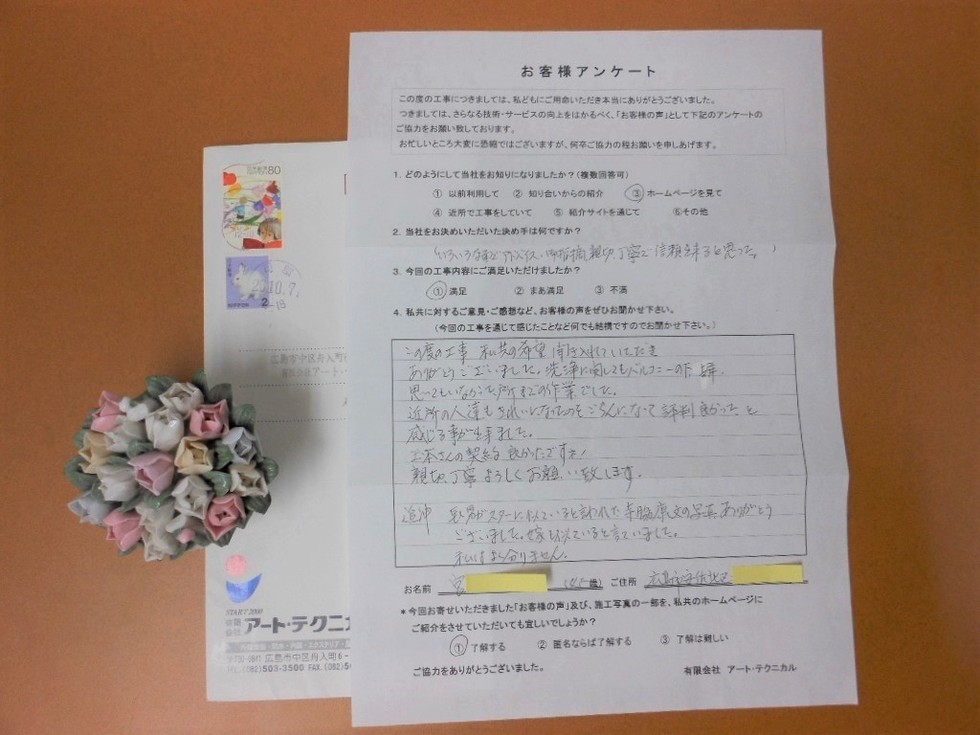 お客様アンケート
この度の工事につきましては、私どもにご用命いただき本当にありがとうございました。
つきましては、さらなる技術・サービスの向上をはかるべく、「お客様の声」として下記のアンケートの
ご協力をお願い致しております。
お忙しいところ大変に恐縮ではございますが、何卒ご協力の程お願いを申しあげます。
1. どのようにして当社をお知りになりましたか?(複数回答可)
① 以前利用して ② 知り合いからの紹介 ③ ホームページを見て
④ 近所で工事をしていて ⑤ 紹介サイトを通じて ⑥その他
2. 当社をお決めいただいた決め手は何ですか?
いろいろ アドバイス 親切丁寧で信頼出来ると思った。
3. 今回の工事内容にご満足いただけましたか?
① 満足 ② まあ満足 ③ 不満
4. 私共に対するご意見・ご感想など、お客様の声をぜひお聞かせ下さい。
(今回の工事を通じて感じたことなど何でも結構ですのでお聞かせ下さい。)
この度の工事 私共の希望 聞き入れていただき
ありがとうございました。洗浄に関してもバルコニーの下
思ってもいなかった所までの作業でした。
近所の人達もきれいになったのをごらんになって評判良かったと
感じる事が出来ました。
さんの契約 良かったですネ!
親切丁寧よろしくお願い致します。
追伸 スターに似ていると言われた寺脇康文の写真ありがとう
ございました。嫁も似ていると言っていました。
私はよく分りません。
お名前 宮 歳) ご住所 広島市安佐北区
*今回お寄せいただきました「お客様の声」及び、施工写真の一部を、私共のホームページに
ご紹介をさせていただいても宜しいでしょうか?
① 了解する ② 匿名ならば了解する ③ 了解は難しい
ご協力をありがとうございました。 有限会社 アート・テクニカル
80
10.7
2
-18
広島市中区舟入町
有限会社アート・
START 2000
有限会社 アート・テクニカ
広島市中区舟入町6-
TEL.(082)503-3500 FAX.(082)